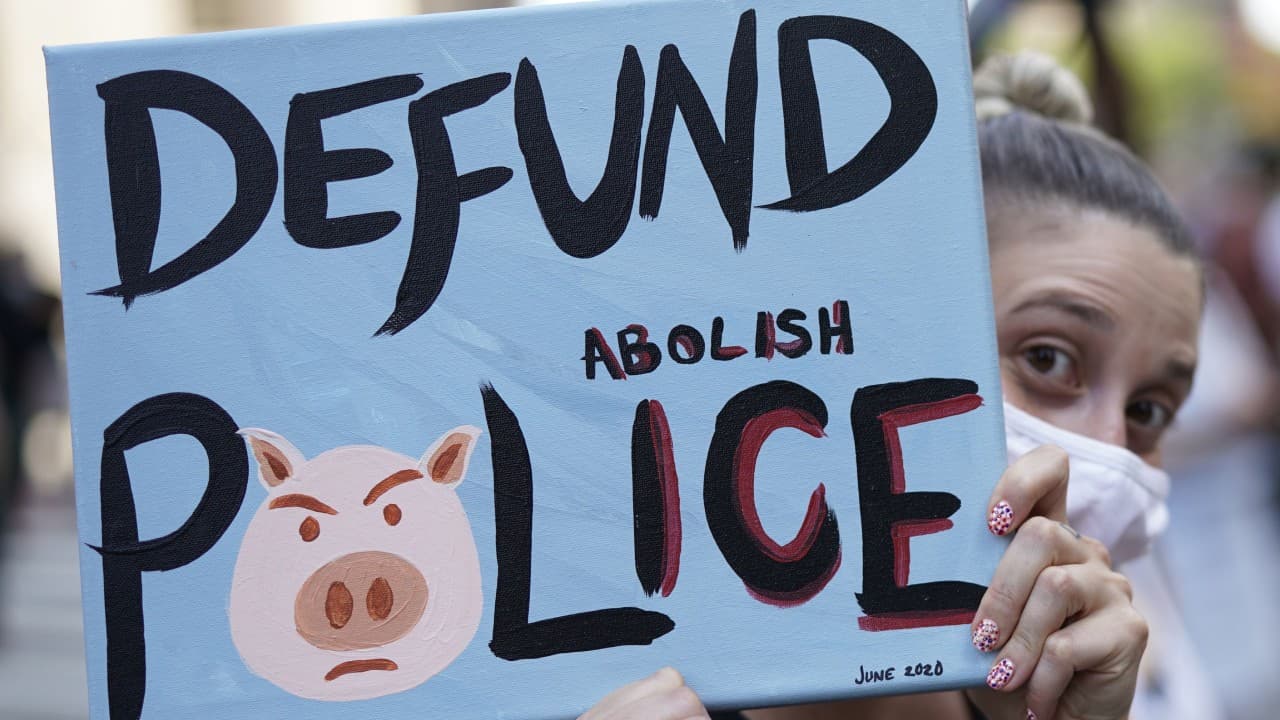 DEFUND
ABOLISH
POLICE
JUNE 2020